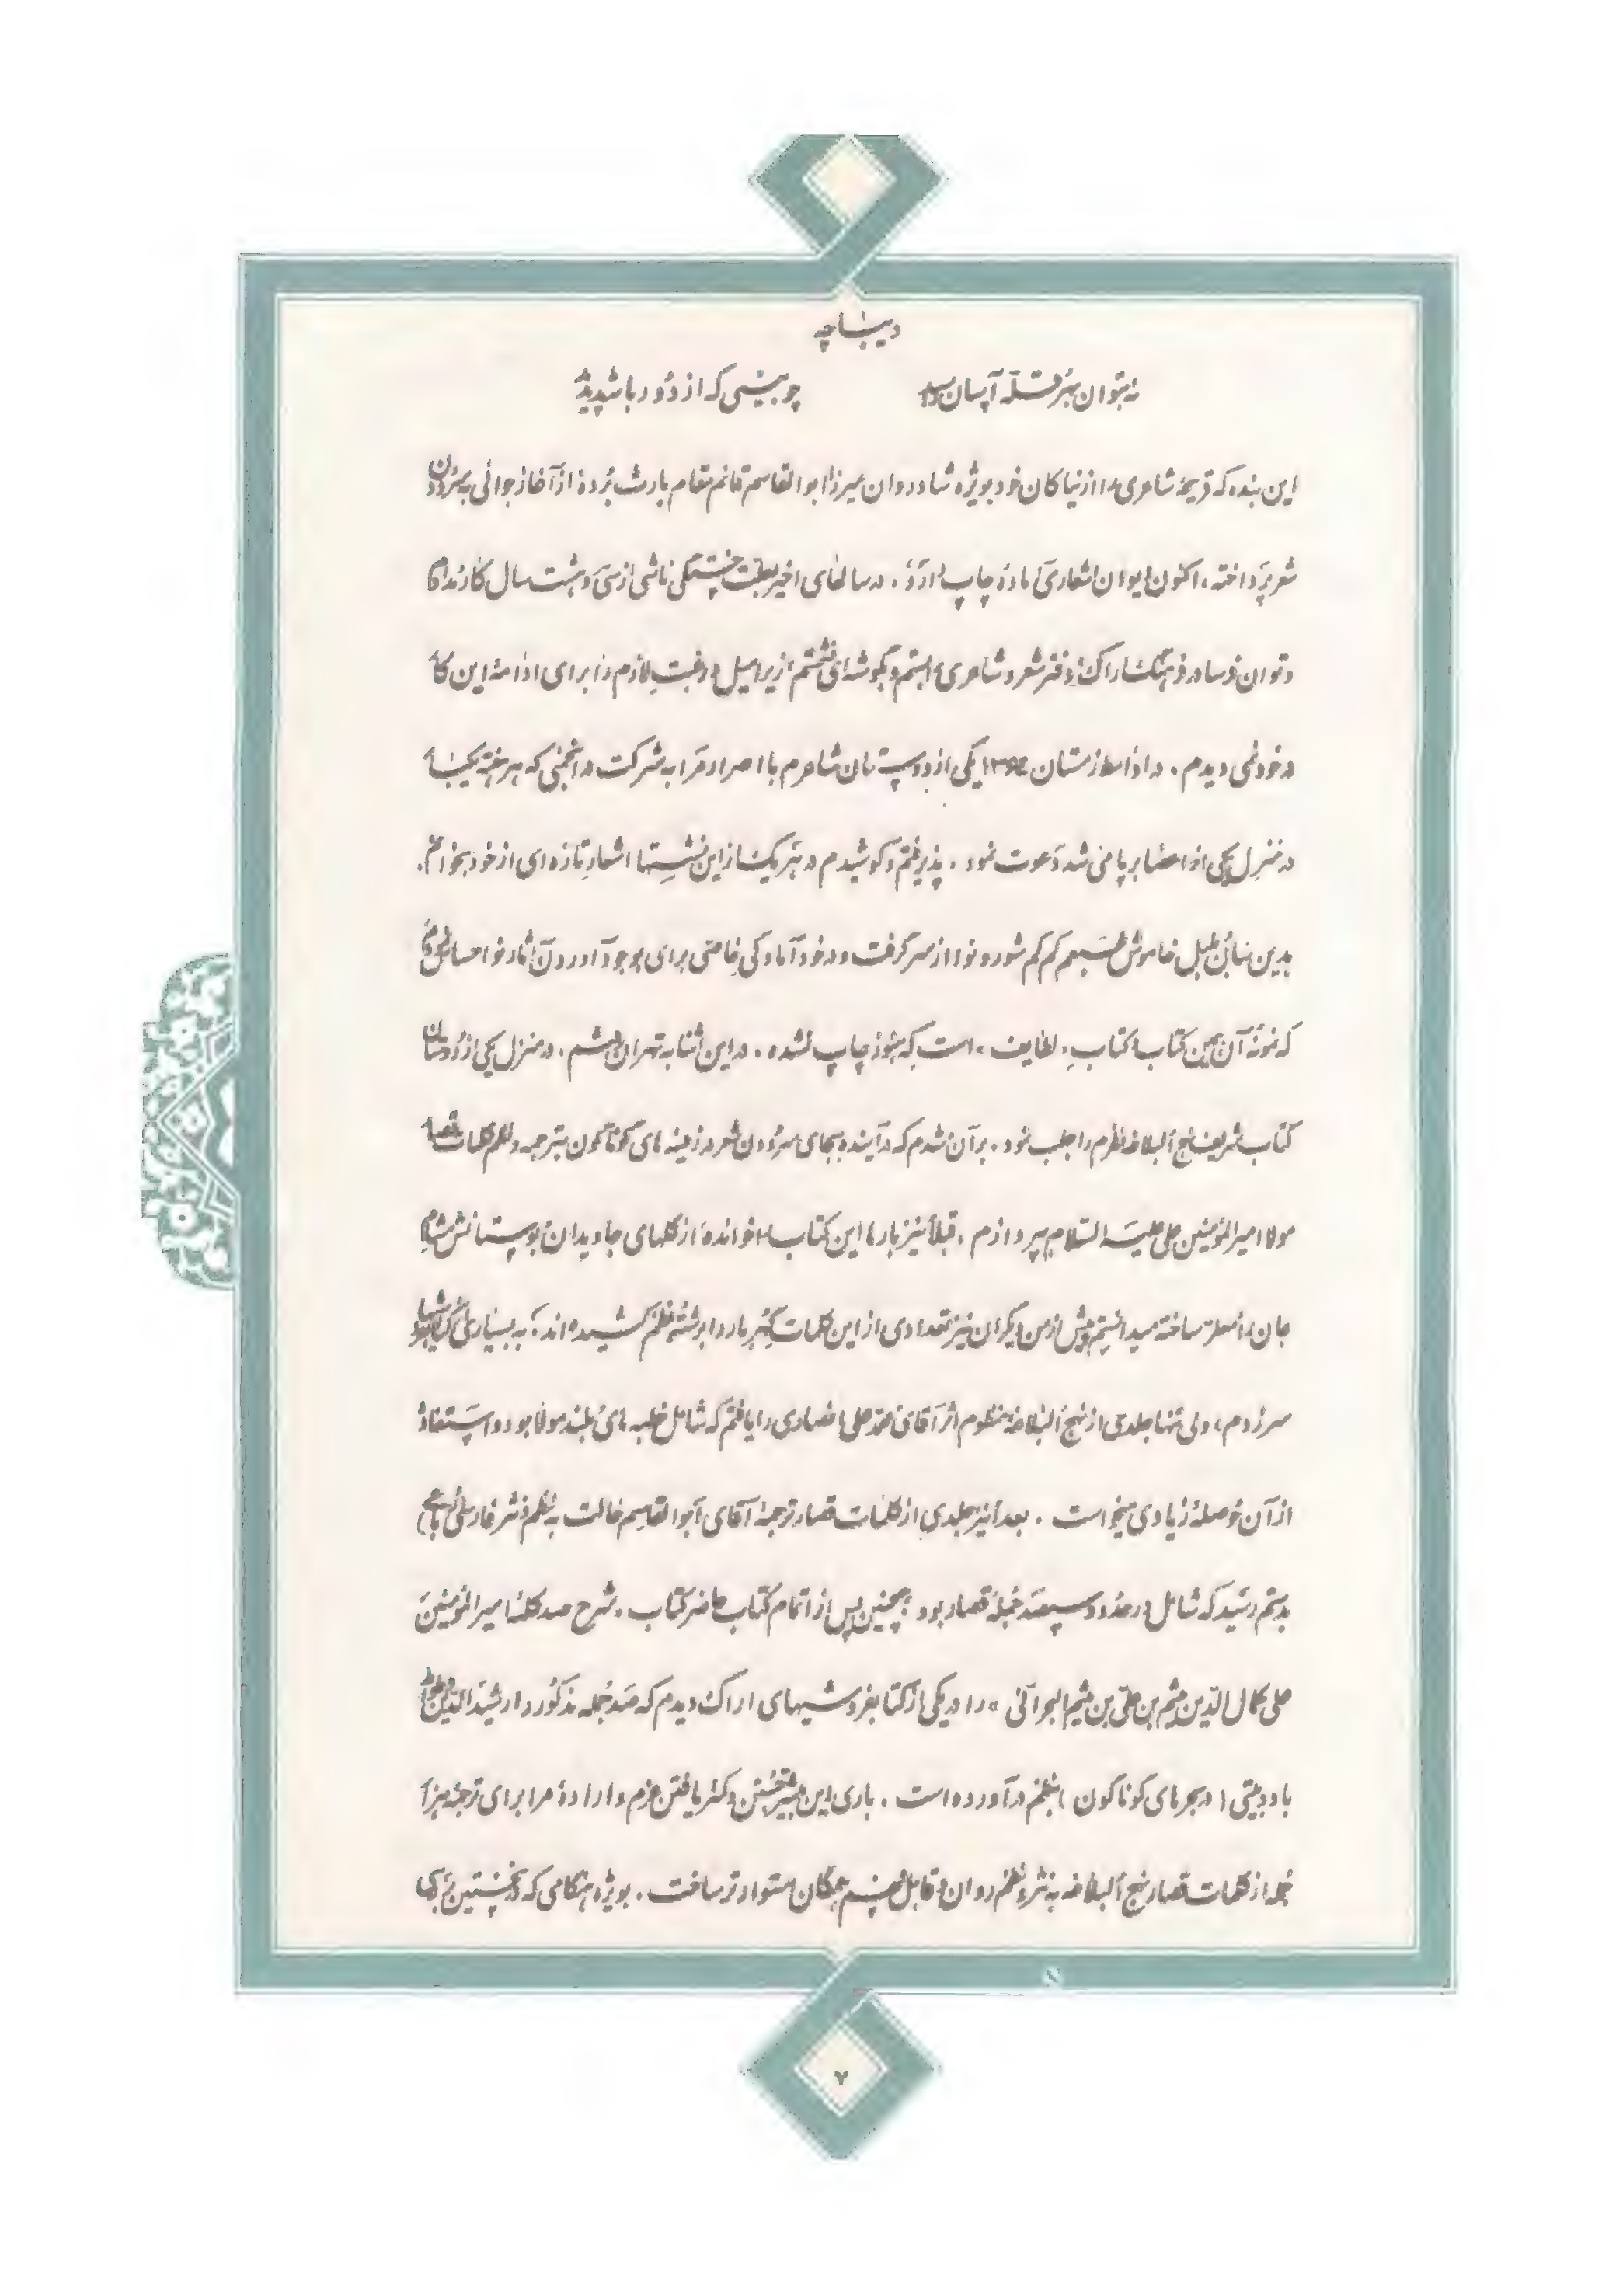 دیباچه
نه بتوان به هر قلّه آسان رسید چو بینی که از دُور باشد پدید
این بنده که قریحهٔ شاعری را از نیاکان خود بویژه شادروان میرزا ابوالقاسم قائم مقام بارث بُرده از آغاز جوانی به سرودن
شعر پرداخته، اکنون دیوان اشعاری آمادهٔ چاپ دارد. در سالهای اخیر بعلّت خستگی ناشی از سی و هشت سال کار مداوم
و توان فرسا در فرهنگ اراک دفتر شعر و شاعری را بستم و بگوشه‌ای نشستم زیرا میل و رغبتِ لازم را برای ادامهٔ این کار
در خود نمی دیدم. در اواسط زمستان یکی از دوستان شاعرم با اصرار مرا به شرکت در انجمنی که هر هفته یکبار
در منزلِ یکی از اعضا بر پا می شد دَعوت نمود. پذیرفتم و کوشیدم در هَر یک از این نشستها اشعارِ تازه‌ای از خود بخوانم.
بدین سان بُلبل خاموش طبعم کم کم شور و نوا از سر گرفت و در خود آمادگی خاصّی برای بوجود آوردن آثار نو احساس
که نمونهٔ آن همین کتاب و کتابِ «لطایف» است که هنوز چاپ نشده. در این اثنا به تهران در منزل یکی از دوستان
کتاب شریف نهج البلاغه نظرم را جلب نمود. بر آن شدم که در آینده بجای سرودن شعر در زمینه های گوناگون بترجمه و نظم کلمات قصار
مولا امیرالمؤمنین علی علیه السّلام بپردازم. قبلاً نیز بارها این کتاب را خوانده از گلهای جاویدان بوستانش مشام
جان را معطر ساخته میدانستم پیش از من دیگران نیز تعدادی از این کلمات گُهربار را برشتهٔ نظم کشیده‌اند؛ به بسیاری
سر زدم، ولی تنها جلدی از نهج البلاغهٔ منظوم اثر آقای محمّد علی انصاری را یافتم که شامل خطبه های بلند مولا بود و استفاده
از آن حوصلهٔ زیادی میخواست. بعداً نیز جلدی از کلمات قصار ترجمهٔ آقای ابوالقاسم حالت به نظم و نثر فارسی
بدستم رسید که شامل در حدود سیصد جُملهٔ قصار بود همچنین پس از اتمام کتاب حاضر کتاب «شرح صد کلمهٔ امیرالمؤمنین
علی کمال الدّین میثم بن علی بن میثم البحرانی» را در یکی از کتابفروشیهای اراک دیدم که صد جُمله مذکور را رشیدالدّین
با دو بیتی (در بحرهای گوناگون) بنظم در آورده است. باری این بیشتر جُستن و کمتر یافتن عزم و ارادهٔ مرا برای ترجمهٔ هزار
جمله از کلمات قصار نهج البلاغه به نثر و نظم روان و قابل فهم همگان استوارتر ساخت. بویژه هنگامی که در نخستین
۷